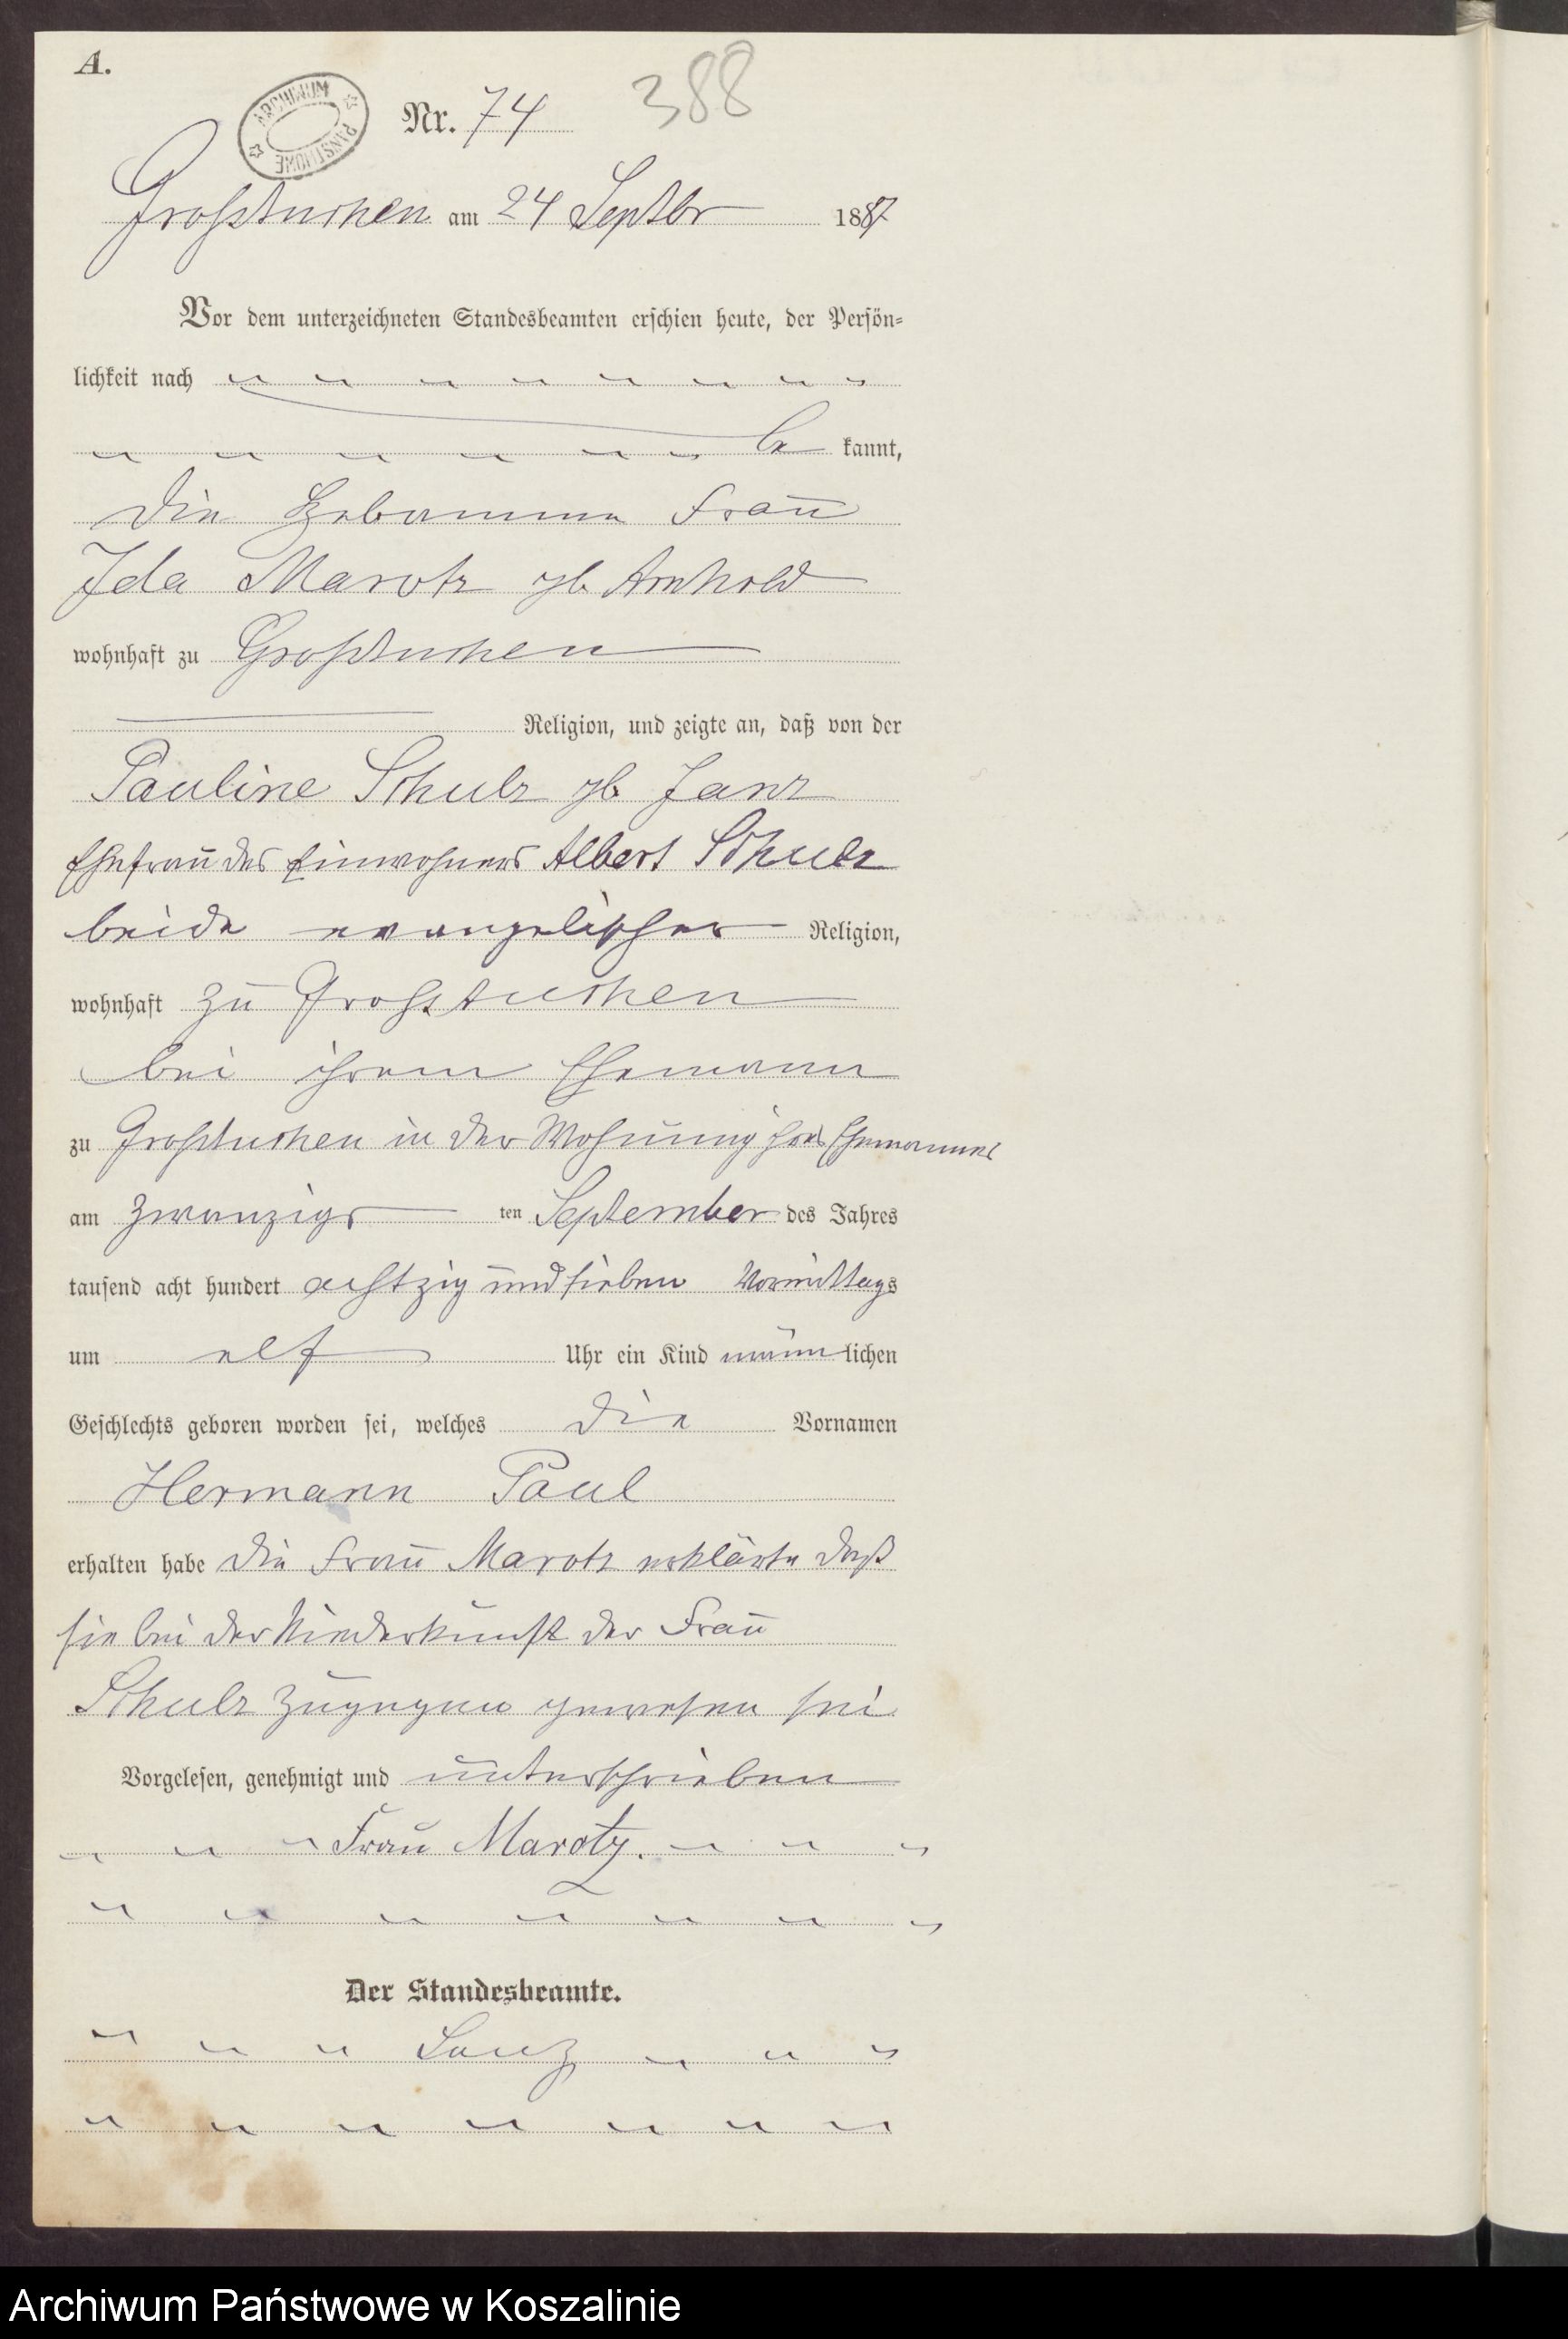 A.
ARCHIWUM PAŃSTWOWE
Nr. 74 388
Großtuchen am 24 Septbr 1887
Vor dem unterzeichneten Standesbeamten erschien heute, der Persön-
lichkeit nach
be kannt,
die Hebamme Frau
Ida Marotz gb Arnhold
wohnhaft zu Großtuchen
Religion, und zeigte an, daß von der
Pauline Schulz gb Janz
Ehefrau des Einwohners Albert Schulz
beide evangelischer Religion,
wohnhaft zu Großtuchen
bei ihrem Ehemann
zu Großtuchen in der Wohnung ihres Ehemannes
am zwanzigs ten September des Jahres
tausend acht hundert achtzig und sieben Vormittags
um elf Uhr ein Kind männ lichen
Geschlechts geboren worden sei, welches die Vornamen
Hermann Paul
erhalten habe die Frau Marotz erklärte daß
sie bei der Niederkunft der Frau
Schulz zugegen gewesen sei
Vorgelesen, genehmigt und unterschrieben
Frau Marotz.
Der Standesbeamte.
Archiwum Państwowe w Koszalinie